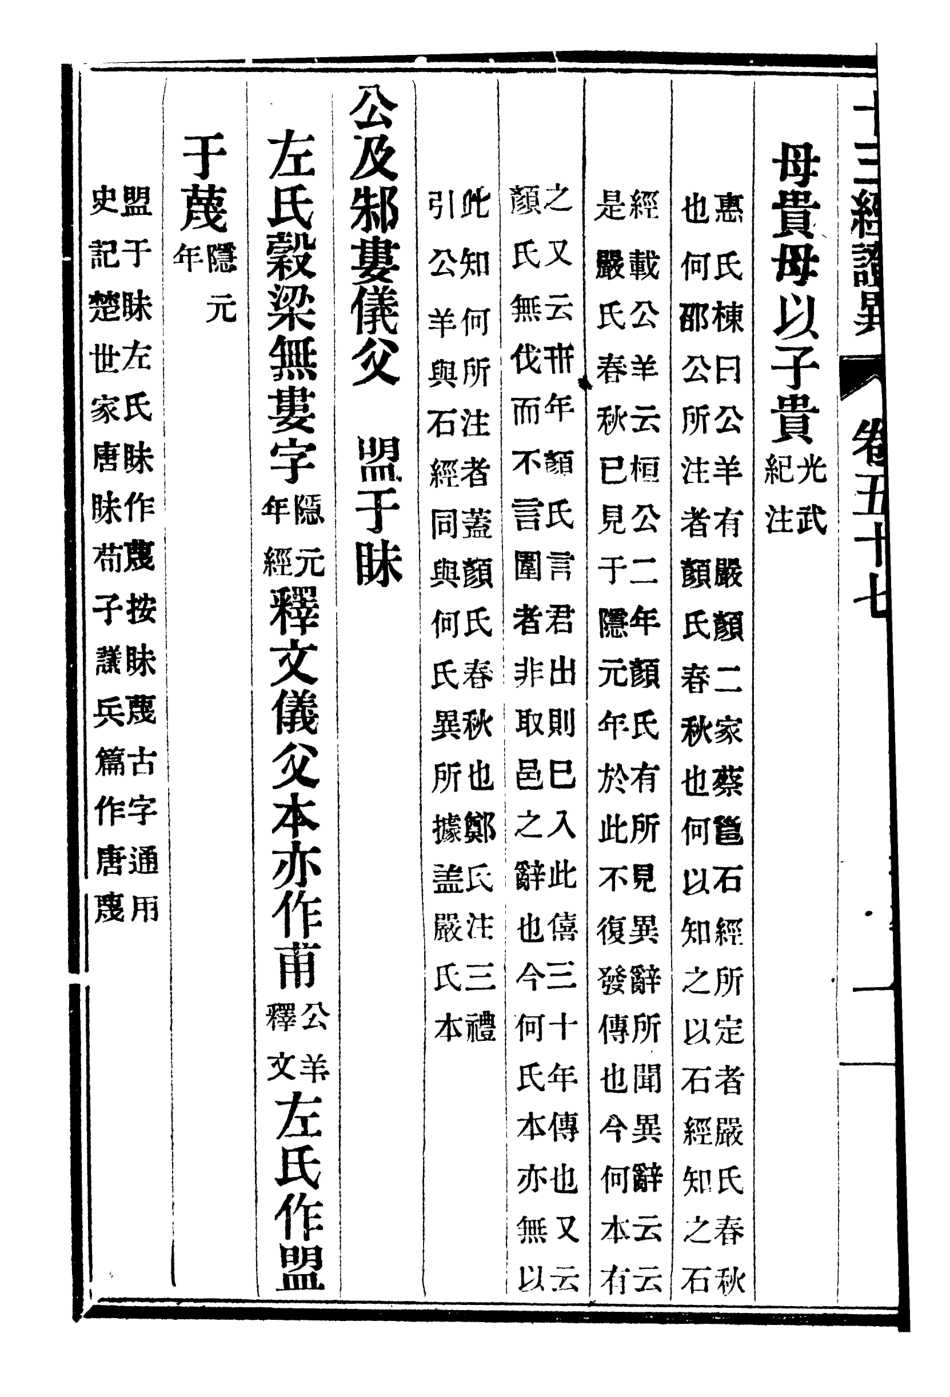 十三經證異 卷五十七 一
母貴母以子貴光武紀注
惠氏棟曰公羊有嚴顏二家蔡邕石經所定者嚴氏春秋
也何邵公所注者顏氏春秋也何以知之以石經知之石
經載公羊云桓公二年顏氏有所見異辭所聞異辭云云
是嚴氏春秋已見于隱元年於此不復發傳也今何本有
之又云卅年顏氏言君出則已入此僖三十年傳也又云
顏氏無伐而不言圍者非取邑之辭也今何氏本亦無以
此知何所注者蓋顏氏春秋也鄭氏注三禮
引公羊與石經同與何氏異所據盖嚴氏本
公及邾婁儀父 盟于眛
左氏穀梁無婁字隱元年經釋文儀父本亦作甫公羊釋文左氏作盟
于蔑隱元年
盟于眛左氏眛作蔑按眛蔑古字通用
史記楚世家唐眛荀子議兵篇作唐蔑